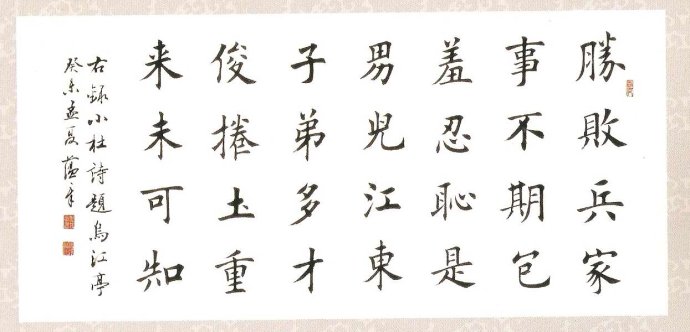 勝敗兵家
事不期包
羞忍恥是
男兒江東
子弟多才
俊捲土重
来未可知
右錄小杜詩題烏江亭
癸未孟夏蘊年